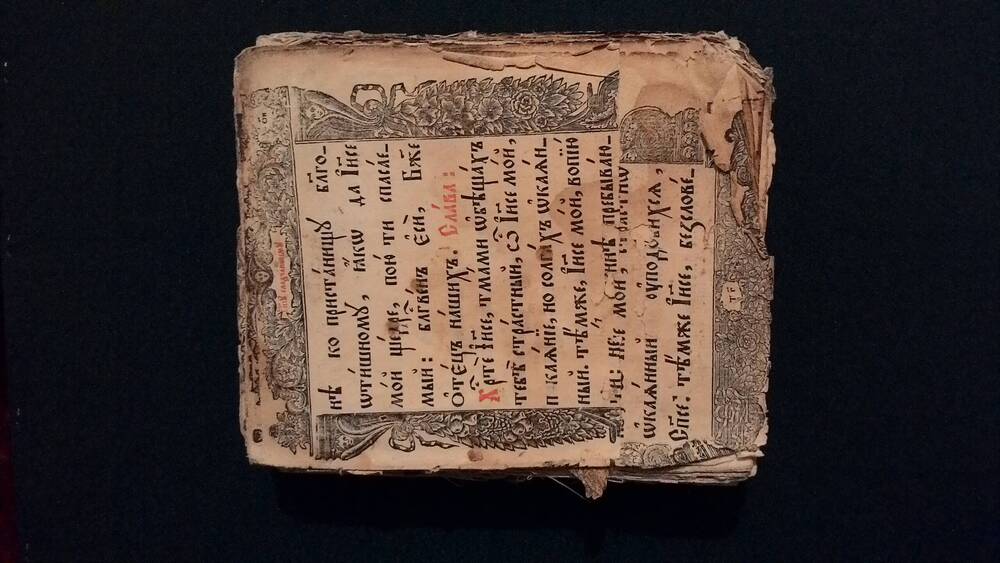 ІИ҃СУ СЛАДЧАЙШЕМУ
нѣ ко приста́нищꙋ бл҃го_
ѡти́шномꙋ, ꙗ҆́кѡ да І҆и҃се
мо́й ще́дре, пою́ ти спаса́е_
мый : бл҃гве́нъ є҆сѝ, Бж҃е
о҆те́цъ на́шихъ. Сла́ва :
Хрⷭ҇тѐ І҆и҃се, тма́ми ѡ҆бѣща́хъ
тебѣ̀ стра́стный, ѽ І҆и҃се мо́й,
п каѧ́нїе, но солга́хъ ѡ҆каѧ́н_
ный. тѣ́мже, І҆и҃се мо́й, вопїю̀
ти: мо́й, пребыва́ю_
ѡ҆каѧ́нный
Сп҃се: тѣ́мже І҆и҃се, безслове́_